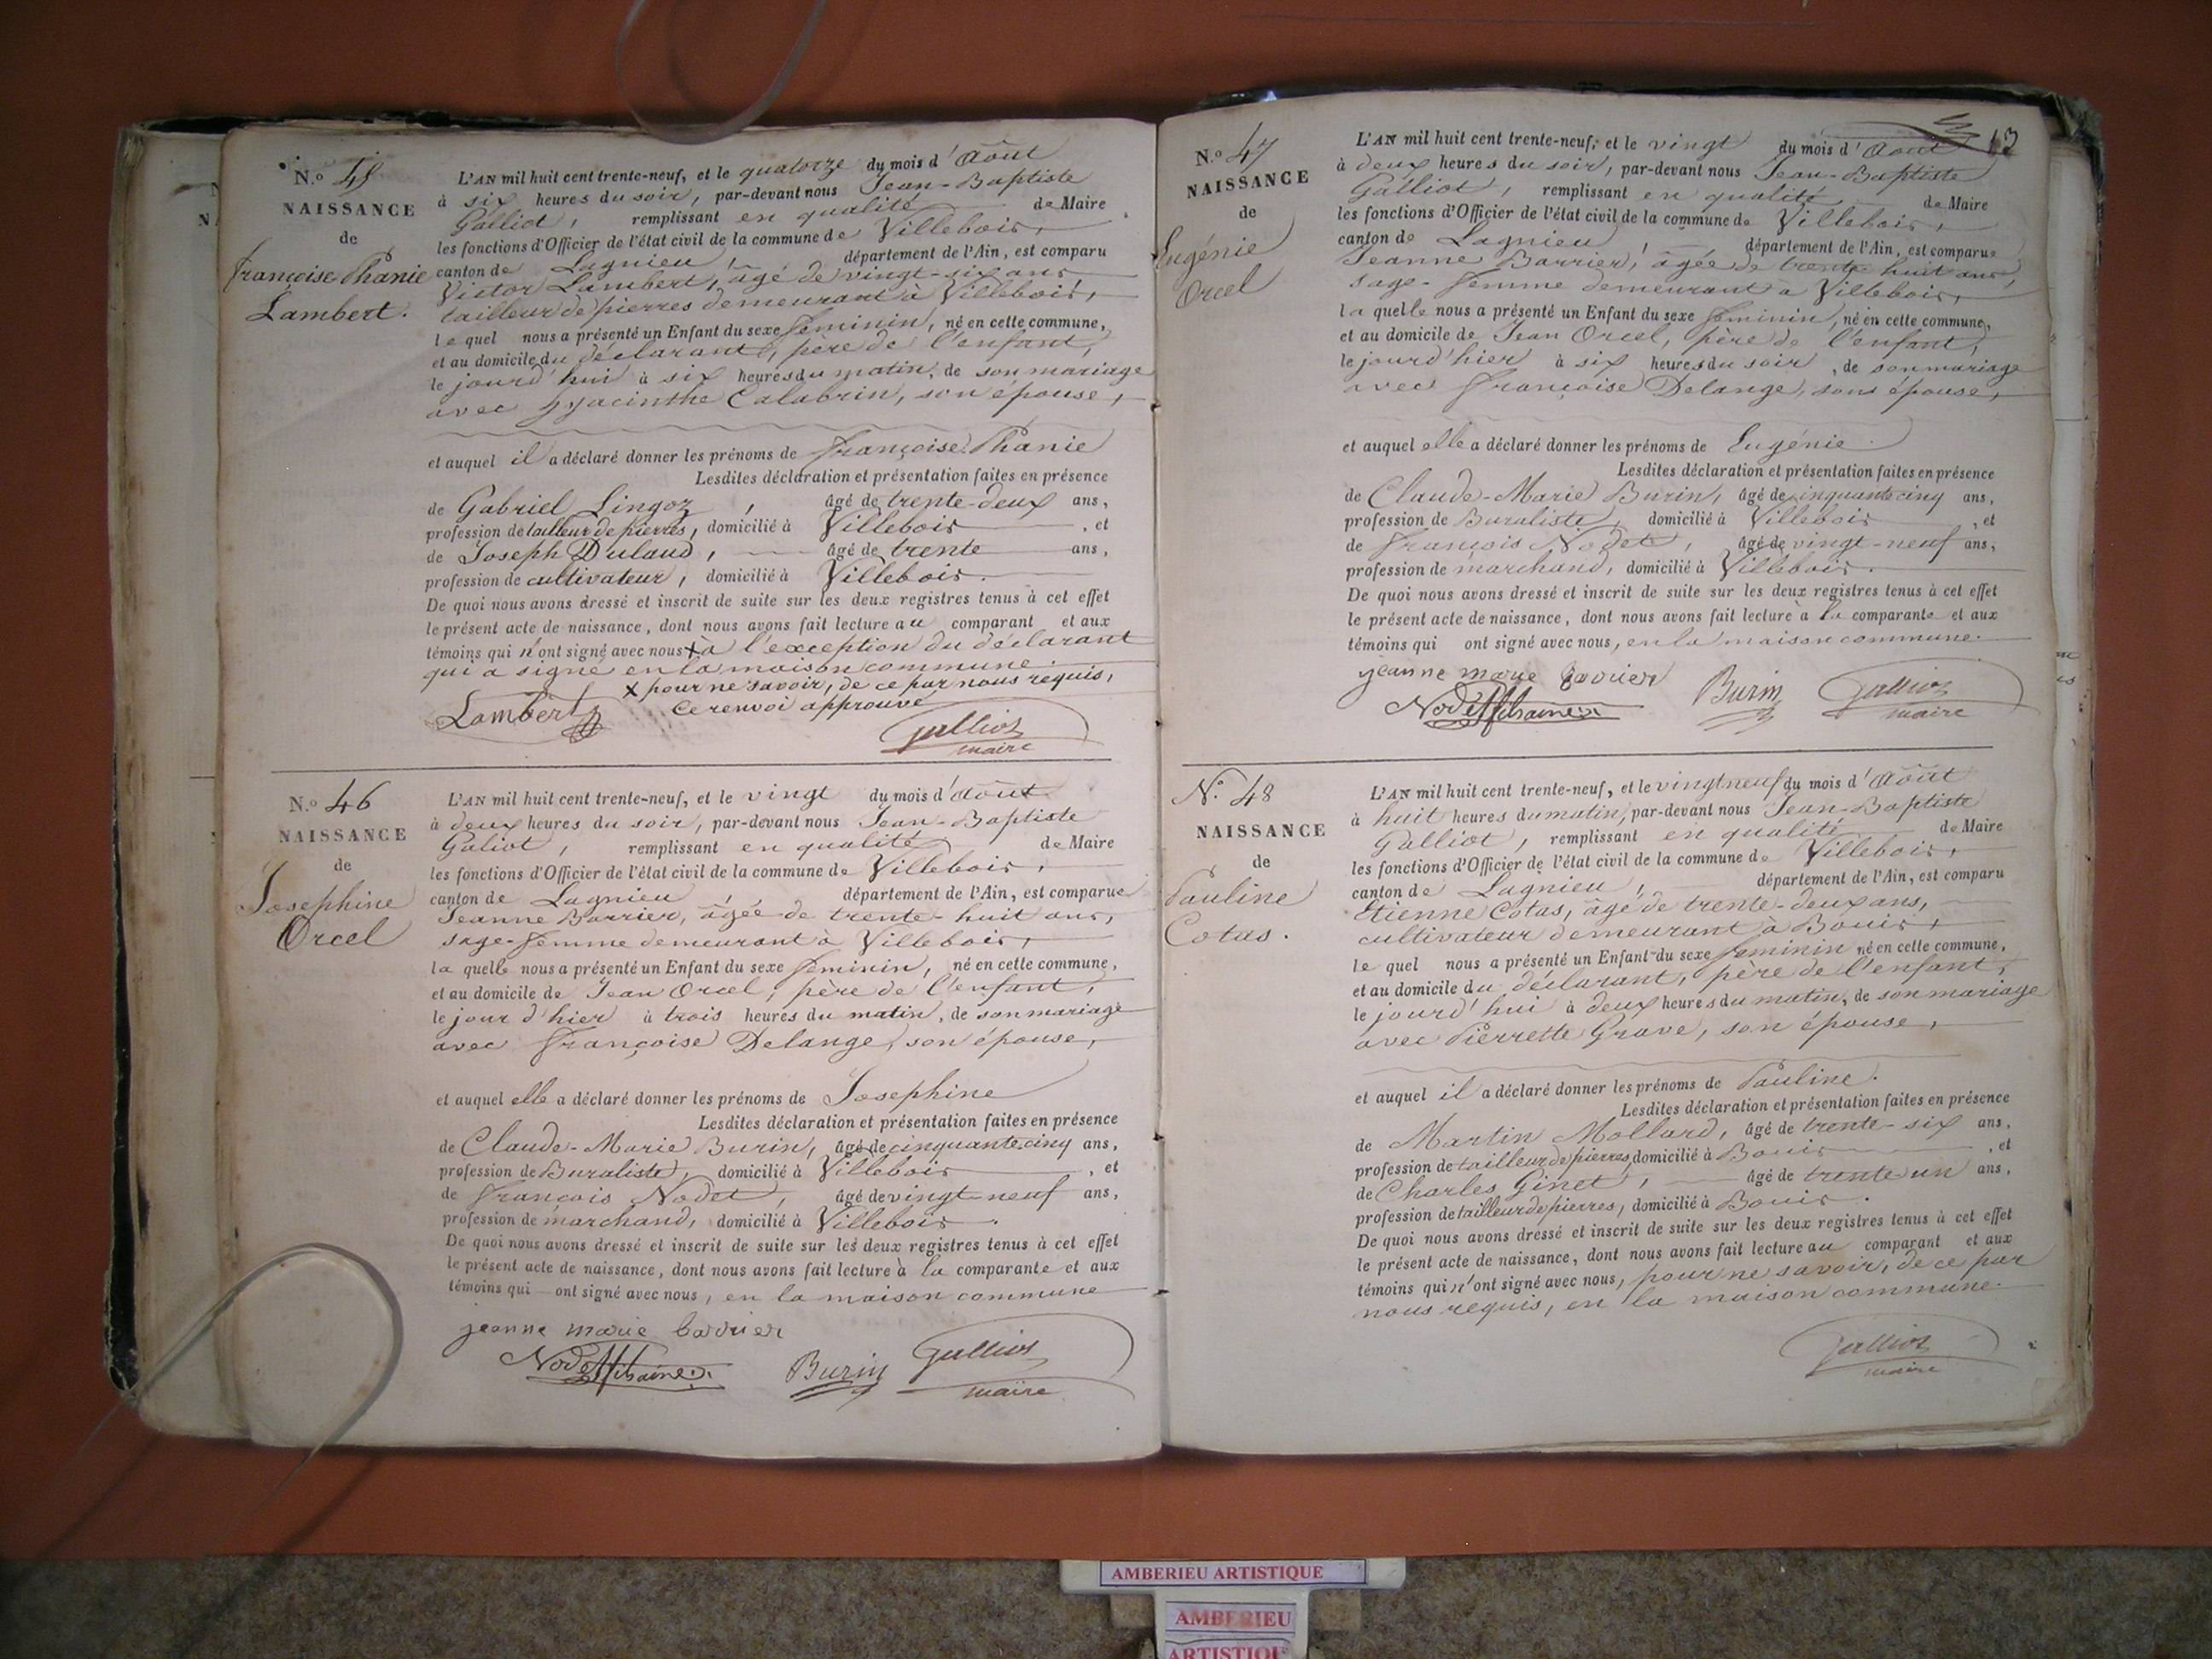 N.o 45
NAISSANCE
de
Françoise Phanie
Lambert.
L'AN mil huit cent trente-neuf, et le quatorze du mois d'Août
à six heures du soir, par-devant nous Jean-Baptiste
Galliot, remplissant en qualité de Maire
les fonctions d'Officier de l'état civil de la commune de Villebois,
canton de Lagnieu, département de l'Ain, est comparu
Victor Lambert, âgé de vingt-six ans
tailleur de pierres demeurant à Villebois,
le quel nous a présenté un Enfant du sexe féminin, né en cette commune,
et au domicile du déclarant, père de l'enfant,
le jourd'hui à six heures du matin, de son mariage
avec Hyacinthe Calabrin, son épouse,
et auquel il a déclaré donner les prénoms de Françoise Phanie
Lesdites déclaration et présentation faites en présence
de Gabriel Lingoz, âgé de trente-deux ans,
profession de tailleur de pierres, domicilié à Villebois, et
de Joseph Dulaud, âgé de trente ans,
profession de cultivateur, domicilié à Villebois.
De quoi nous avons dressé et inscrit de suite sur les deux registres tenus à cet effet
le présent acte de naissance, dont nous avons fait lecture au comparant et aux
témoins qui n'ont signé avec nous X à l'exception du déclarant
qui a signé en la maison commune.
X pour ne savoir, de ce par nous requis,
Ce renvoi approuvé
Lambert
Galliot
maire
N.o 46
NAISSANCE
de
Josephine
Orcel
L'AN mil huit cent trente-neuf, et le vingt du mois d'Août
à deux heures du soir, par-devant nous Jean-Baptiste
Galiot, remplissant en qualité de Maire
les fonctions d'Officier de l'état civil de la commune de Villebois,
canton de Lagnieu, département de l'Ain, est comparue
Jeanne Barrier, âgée de trente-huit ans,
sage-femme demeurant à Villebois,
la quelle nous a présenté un Enfant du sexe féminin, né en cette commune,
et au domicile de Jean Orcel, père de l'enfant,
le jour d'hier à trois heures du matin, de son mariage
avec Françoise Delange, son épouse,
et auquel elle a déclaré donner les prénoms de Josephine
Lesdites déclaration et présentation faites en présence
de Claude-Marie Burin, âgé de cinquante cinq ans,
profession de Buraliste, domicilié à Villebois, et
de François Nodet, âgé de vingt-neuf ans,
profession de marchand, domicilié à Villebois.
De quoi nous avons dressé et inscrit de suite sur les deux registres tenus à cet effet
le présent acte de naissance, dont nous avons fait lecture à la comparante et aux
témoins qui ont signé avec nous, en la maison commune
jeanne marie barrier
Nodet
Burin
Galliot
maire
13
N.o 47
NAISSANCE
de
Eugénie
Orcel
L'AN mil huit cent trente-neuf, et le vingt du mois d'Août
à deux heures du soir, par-devant nous Jean-Baptiste
Galliot, remplissant en qualité de Maire
les fonctions d'Officier de l'état civil de la commune de Villebois,
canton de Lagnieu, département de l'Ain, est comparue
Jeanne Barrier, âgée de trente huit ans,
sage-femme demeurant à Villebois,
la quelle nous a présenté un Enfant du sexe féminin, né en cette commune,
et au domicile de Jean Orcel, père de l'enfant,
le jourd'hier à six heures du soir, de son mariage
avec Françoise Delange, sons épouse,
et auquel elle a déclaré donner les prénoms de Eugénie.
Lesdites déclaration et présentation faites en présence
de Claude-Marie Burin, âgé de cinquante cinq ans,
profession de Buraliste, domicilié à Villebois, et
de François Nodet, âgé de vingt-neuf ans,
profession de marchand, domicilié à Villebois.
De quoi nous avons dressé et inscrit de suite sur les deux registres tenus à cet effet
le présent acte de naissance, dont nous avons fait lecture à la comparante et aux
témoins qui ont signé avec nous, en la maison commune.
jeanne marie barrier
Nodet
Burin
Galliot
maire
N.o 48
NAISSANCE
de
Pauline
Cotas.
L'AN mil huit cent trente-neuf, et le vingt neuf du mois d'Août
à huit heures du matin, par-devant nous Jean-Baptiste
Galliot, remplissant en qualité de Maire
les fonctions d'Officier de l'état civil de la commune de Villebois,
canton de Lagnieu, département de l'Ain, est comparu
Etienne Cotas, âgé de trente-deux ans,
cultivateur demeurant à Bouis,
le quel nous a présenté un Enfant du sexe féminin né en cette commune,
et au domicile du déclarant, père de l'enfant,
le jourd'hui à deux heures du matin, de son mariage
avec Pierrette Grave, son épouse,
et auquel il a déclaré donner les prénoms de Pauline.
Lesdites déclaration et présentation faites en présence
de Martin Mollard, âgé de trente-six ans,
profession de tailleur de pierres, domicilié à Bouis, et
de Charles Ginet, âgé de trente un ans,
profession de tailleur de pierres, domicilié à Bouis.
De quoi nous avons dressé et inscrit de suite sur les deux registres tenus à cet effet
le présent acte de naissance, dont nous avons fait lecture au comparant et aux
témoins qui n'ont signé avec nous, pour ne savoir, de ce par
nous requis, en la maison commune.
Galliot
maire
AMBERIEU ARTISTIQUE
AMBERIEU
ARTISTIQUE